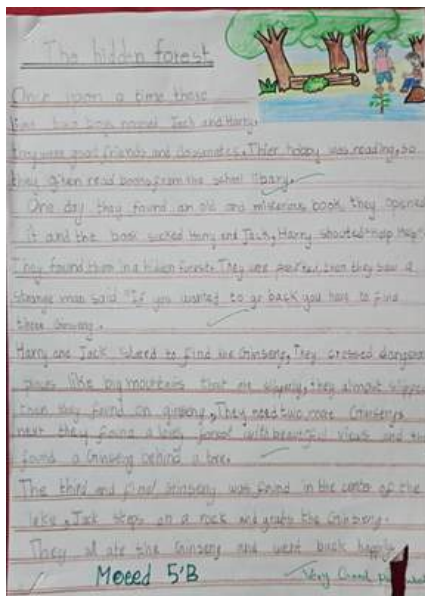 The hidden forest
Once upon a time there
two boys named Jack and Harry.
they were good friends and classmates. Thier hobby was reading, so
they often read books from the school libary.
One day they found an old and misterious book, they opened
it and the book sucked Harry and Jack, Harry shouted "Help Help"
They found them in a hidden forest. They were then they saw a
strange man said "If you wanted to go back you have to find
three Ginseng.
Harry and Jack to find the Ginseng, They crossed dangerous
places like big mountains that are slippery, they almost slipped
then they found an ginseng, They need two more Ginsengs
next they found a forest with beautiful views and
found a Ginseng behind a tree.
The third and final Ginseng was found in the center of the
lake, Jack steps on a rock and grabs the Ginseng.
They all ate the Ginseng and went back happily
Moeed 5'B
Very Good